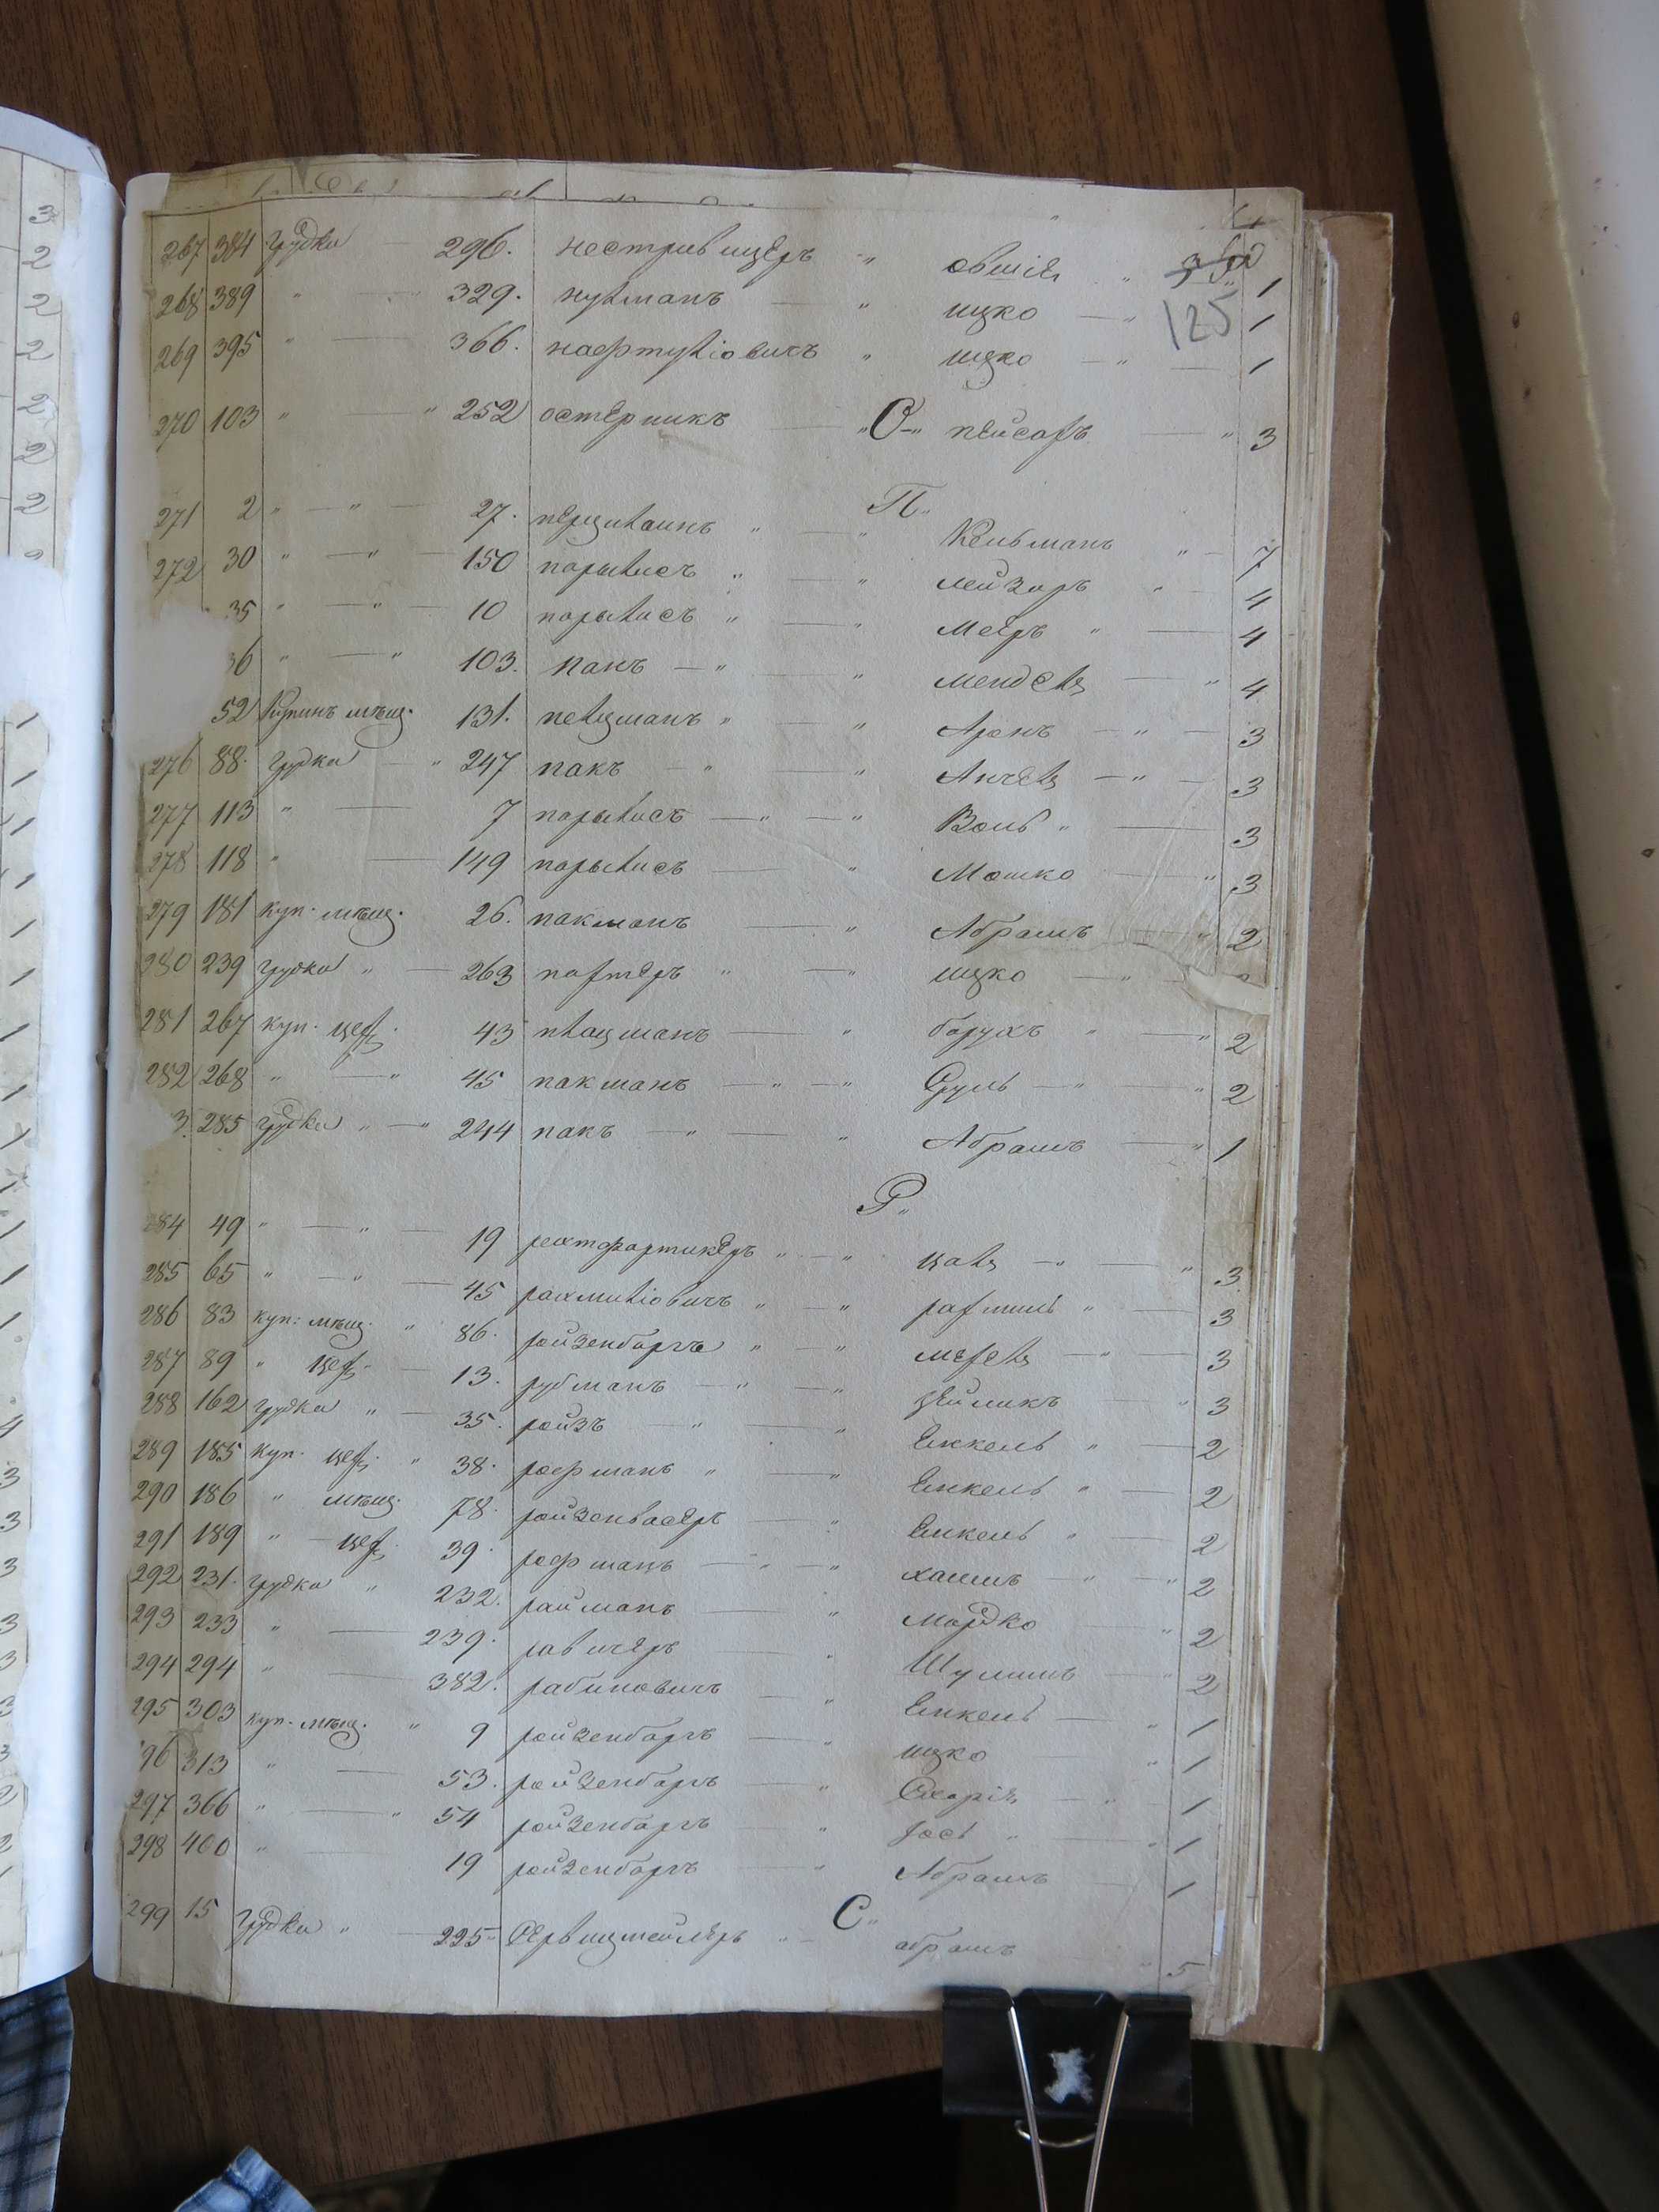 125
267 384 Грудка — 296. нестрависеръ " овшія " 1
268 389 " — 329. нухманъ — " ицко — " 1
269 395 " — 366. нафтуліовичъ " ицко — " — 1
"О"
270 103 " — " 252 остерникъ — пейсахъ — " 3
П.
271 2 " — " — 27. перцилаинъ " — " Кельманъ " — 7
272 30 " — " — 150 порылисъ " — " лейзоръ " — 4
35 " — " — 10 порылисъ " — " Мееръ " — 4
36 " — " 103. панъ — " — " мендель — " 4
52 Купинъ мѣщ. 131. пельцманъ " — " Аронъ — " — 3
276 88. Грудка — " 247 пакъ — " — " Анчель — " — 3
277 113 " — 7 порылисъ — " — " Вольф " — 3
278 118 " — 149 порылисъ — " Мошко — " 3
279 181 куп. мѣщ. 26. пакманъ — " Абрамъ — " 2
280 239 Грудка " — 263 пахтеръ " — " ицко — "
281 267 куп. цех. 43 плацманъ — " борухъ " — " 2
282 268 " — " 45 пакманъ — " — " Сруль — " — " 2
3. 285 Грудка " — " 244 пакъ — " — " Абрамъ — " 1
Р.
284 49 " — " — 19 рехтфартикеръ " — " цаль — " — " 3
285 65 " — " — 45 рахмиліовичъ " — " рахмиль " — 3
286 83 куп: мѣщ. " 86. ройзенборгъ " — " мехель — " — 3
287 89 " цех. — 13. рубманъ — " — " " 3
288 162 Грудка " — 35. ройзъ — " — " Енкель " — 2
289 185 куп. цех. " 38. рофманъ " — " Енкель " — 2
290 186 " мѣщ. 78. ройзенвасеръ — " Енкель " — 2
291 189 " — цех. 39. рофманъ — " — " хаимъ — " — " 2
292 231. Грудка " 232. райманъ — " Мордко — " 2
293 233 " — 239. равичеръ — " Шулимъ — " 2
294 294 " — 382. рабиновичъ — " Енкель — " 1
295 303 куп. мѣщ. " 9 ройзенборгъ — " ицко — " 1
296 313 " — 53. ройзенборгъ — " Сахарія — " — 1
297 366 " — " 54 ройзенборгъ — " Іось " — " 1
298 400 " — 19 ройзенборгъ — " Абрамъ — 1
С.
299 15 Грудка " — 225 " — абрамъ — " 5